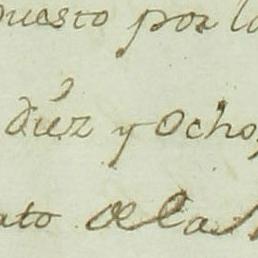 puesto por la
diéz y Ocho,
ato de la